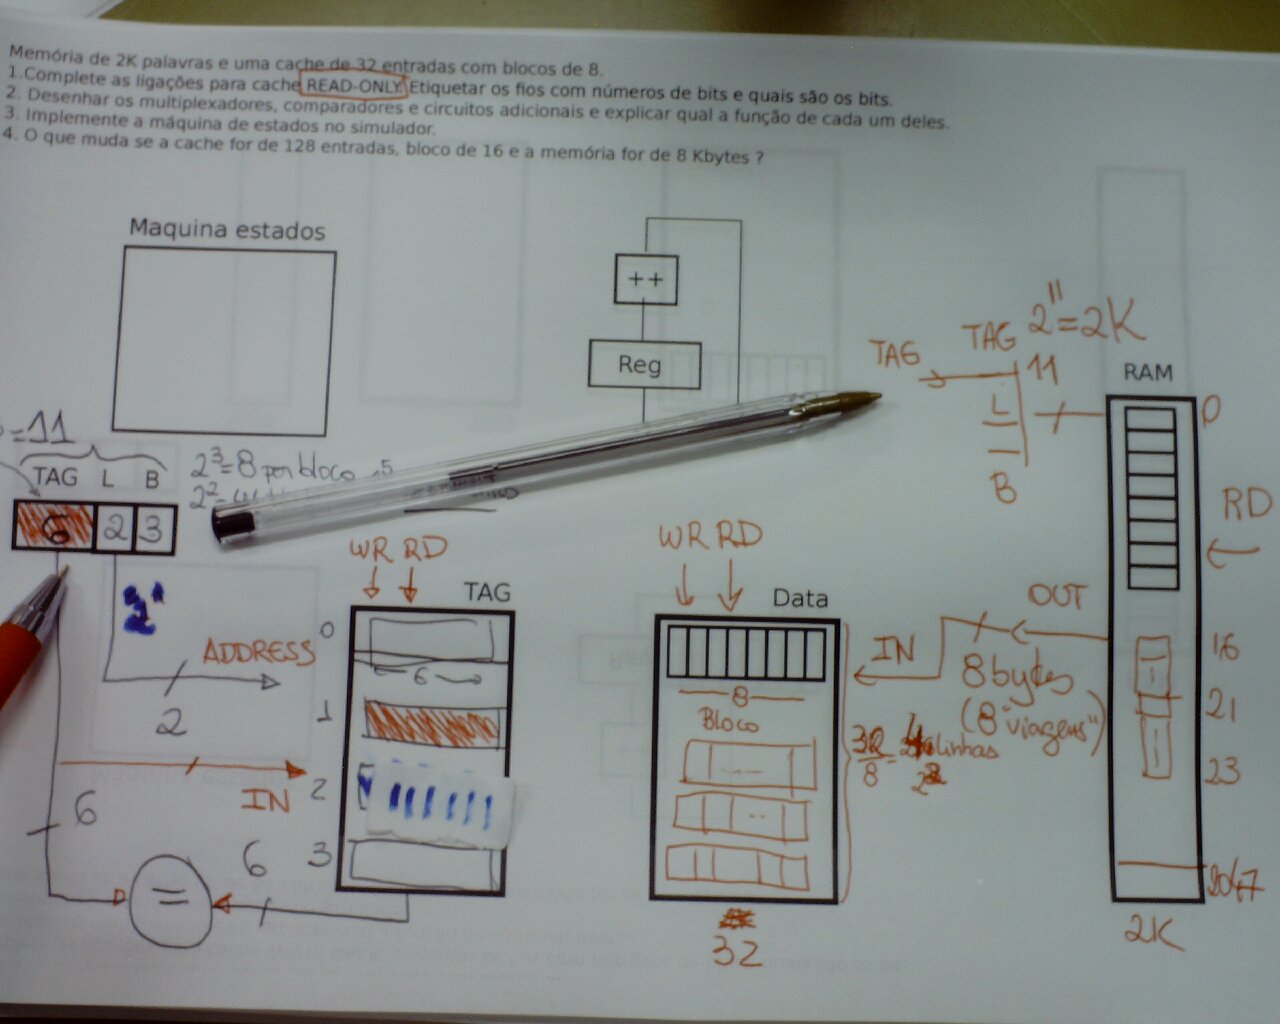 Memória de 2K palavras e uma cache de 32 entradas com blocos de 8.
1.Complete as ligações para cache READ-ONLY. Etiquetar os fios com números de bits e quais são os bits.
2. Desenhar os multiplexadores, comparadores e circuitos adicionais e explicar qual a função de cada um deles.
3. Implemente a máquina de estados no simulador.
4. O que muda se a cache for de 128 entradas, bloco de 16 e a memória for de 8 Kbytes ?
Maquina estados
++
Reg
TAG
TAG
2¹¹=2K
11
L
B
RAM
0
RD
=11
TAG L B
6 2 3
2³=8 por bloco
2²=
WR RD
TAG
0
6
1
2
3
ADDRESS
2
IN
6
6
=
WR RD
Data
8
Bloco
IN
OUT
8 bytes
(8 "viagens")
32/8=
linhas
32
16
21
23
2047
2K